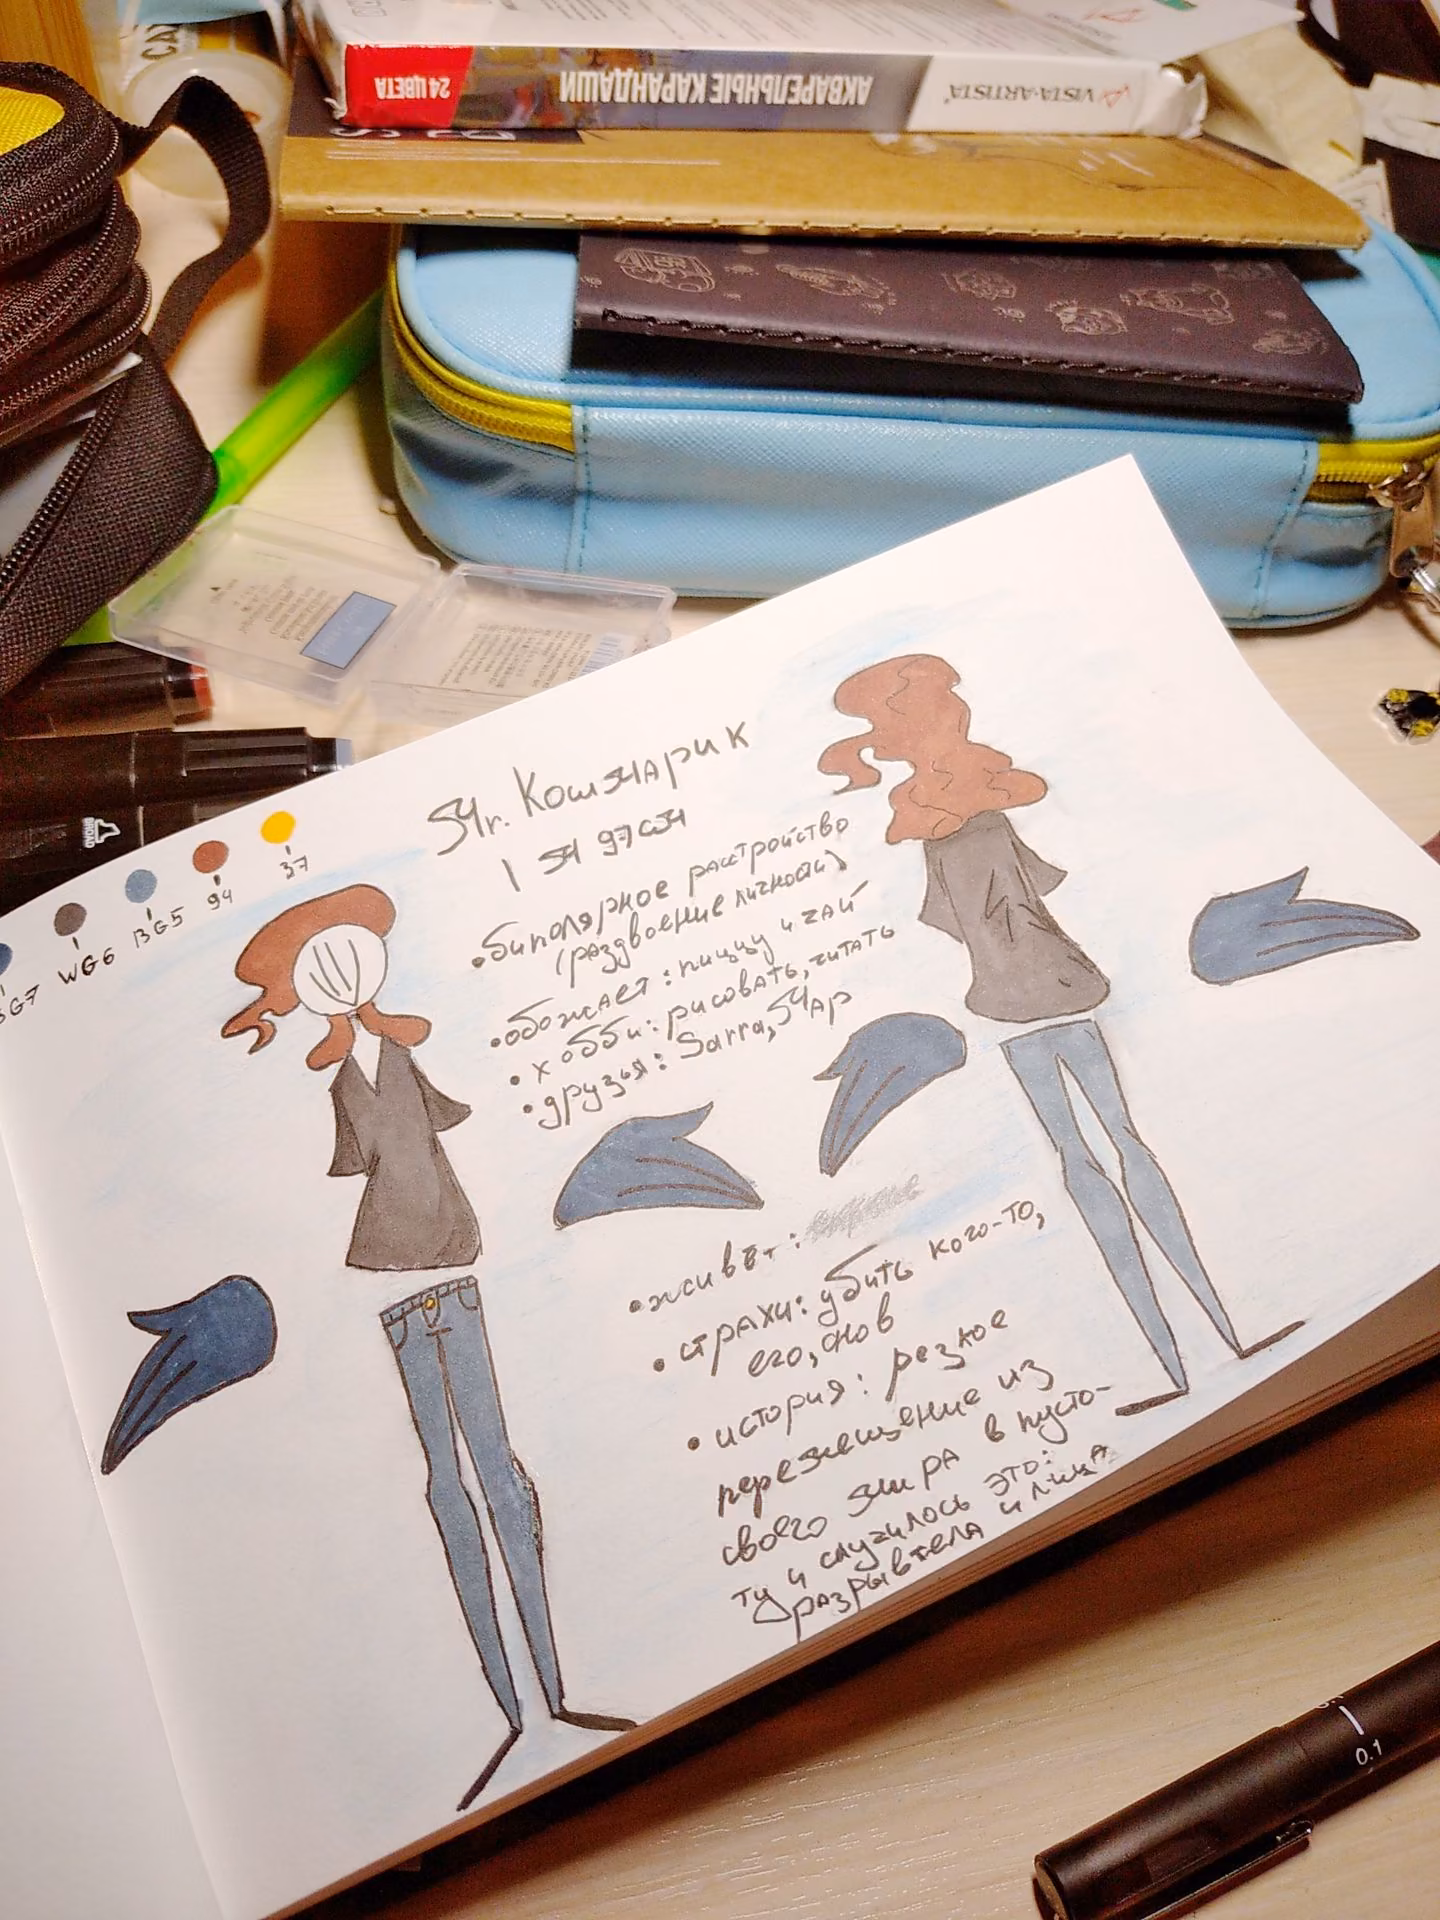 24 ЦВЕТА
АКВАРЕЛЬНЫЕ КАРАНДАШИ
VISTA-ARTISTA
BROAD
BG7
WG6
BG5
94
37
Кошмарик
•биполярное расстройство
(раздвоение личности)
•обожает: пиццу и чай
•хобби: рисовать, читать
•друзья: Sarra, Мар
•живёт:
•страхи: убить кого-то,
его, снов
•история: резкое
перемещение из
своего мира в пусто-
ту и случилось это:
разрыв тела и лица
0.1